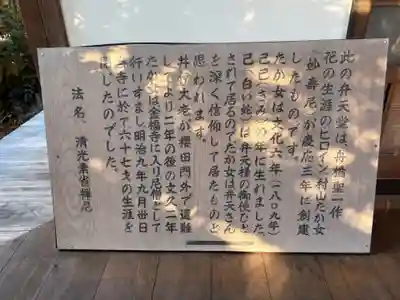 此の弁天堂は、舟橋聖一作
花の生涯のヒロイン村山たか女
（妙寿尼）が慶応三年に創建
したものです。
たか女は文化六年（一八〇九年）
己巳（きみ）の年に生れました。
己（白い蛇）は弁天様の御使ひと
されて居るのでたか女は弁天さん
を深く信仰して居たものと
思われます。
井伊大老が櫻田門外で遭難
してより二年の後の文久二年
たか女は金福寺に入り尼僧として
行いすまし明治九年九月卅日
当寺に於て六十七才の生涯を
閉じたのでした。
法名、清光素省禅尼